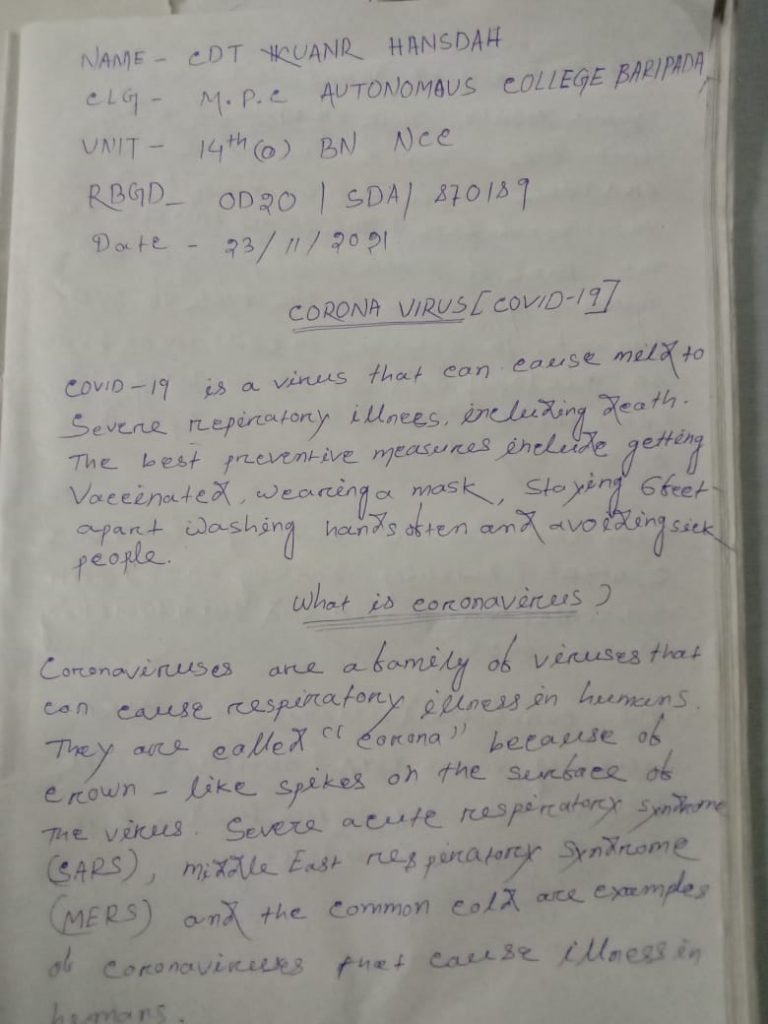 NAME - CDT KUANR HANSDAH
CLG - M.P.C AUTONOMAUS COLLEGE BARIPADA
UNIT - 14th (O) BN NCC
RBGD_ OD20 | SDA| 870189
Date - 23/11/2021
CORONA VIRUS [COVID-19]
COVID-19 is a virus that can cause mild to
Severe repiratory illnees, including death.
The best preventive measures include getting
Vaccinated, wearing a mask, Staying 6 feet
apart washing hands often and avoiding sick
people.
What is coronavirus?
Coronaviruses are a family of viruses that
can cause respiratory illness in humans.
They are called "corona" because of
crown-like spikes on the surface of
The virus. Severe acute respiratory syndrome
(SARS), middle East respiratory syndrome
(MERS) and the common cold are examples
of coronaviruses that cause illness in
humans.